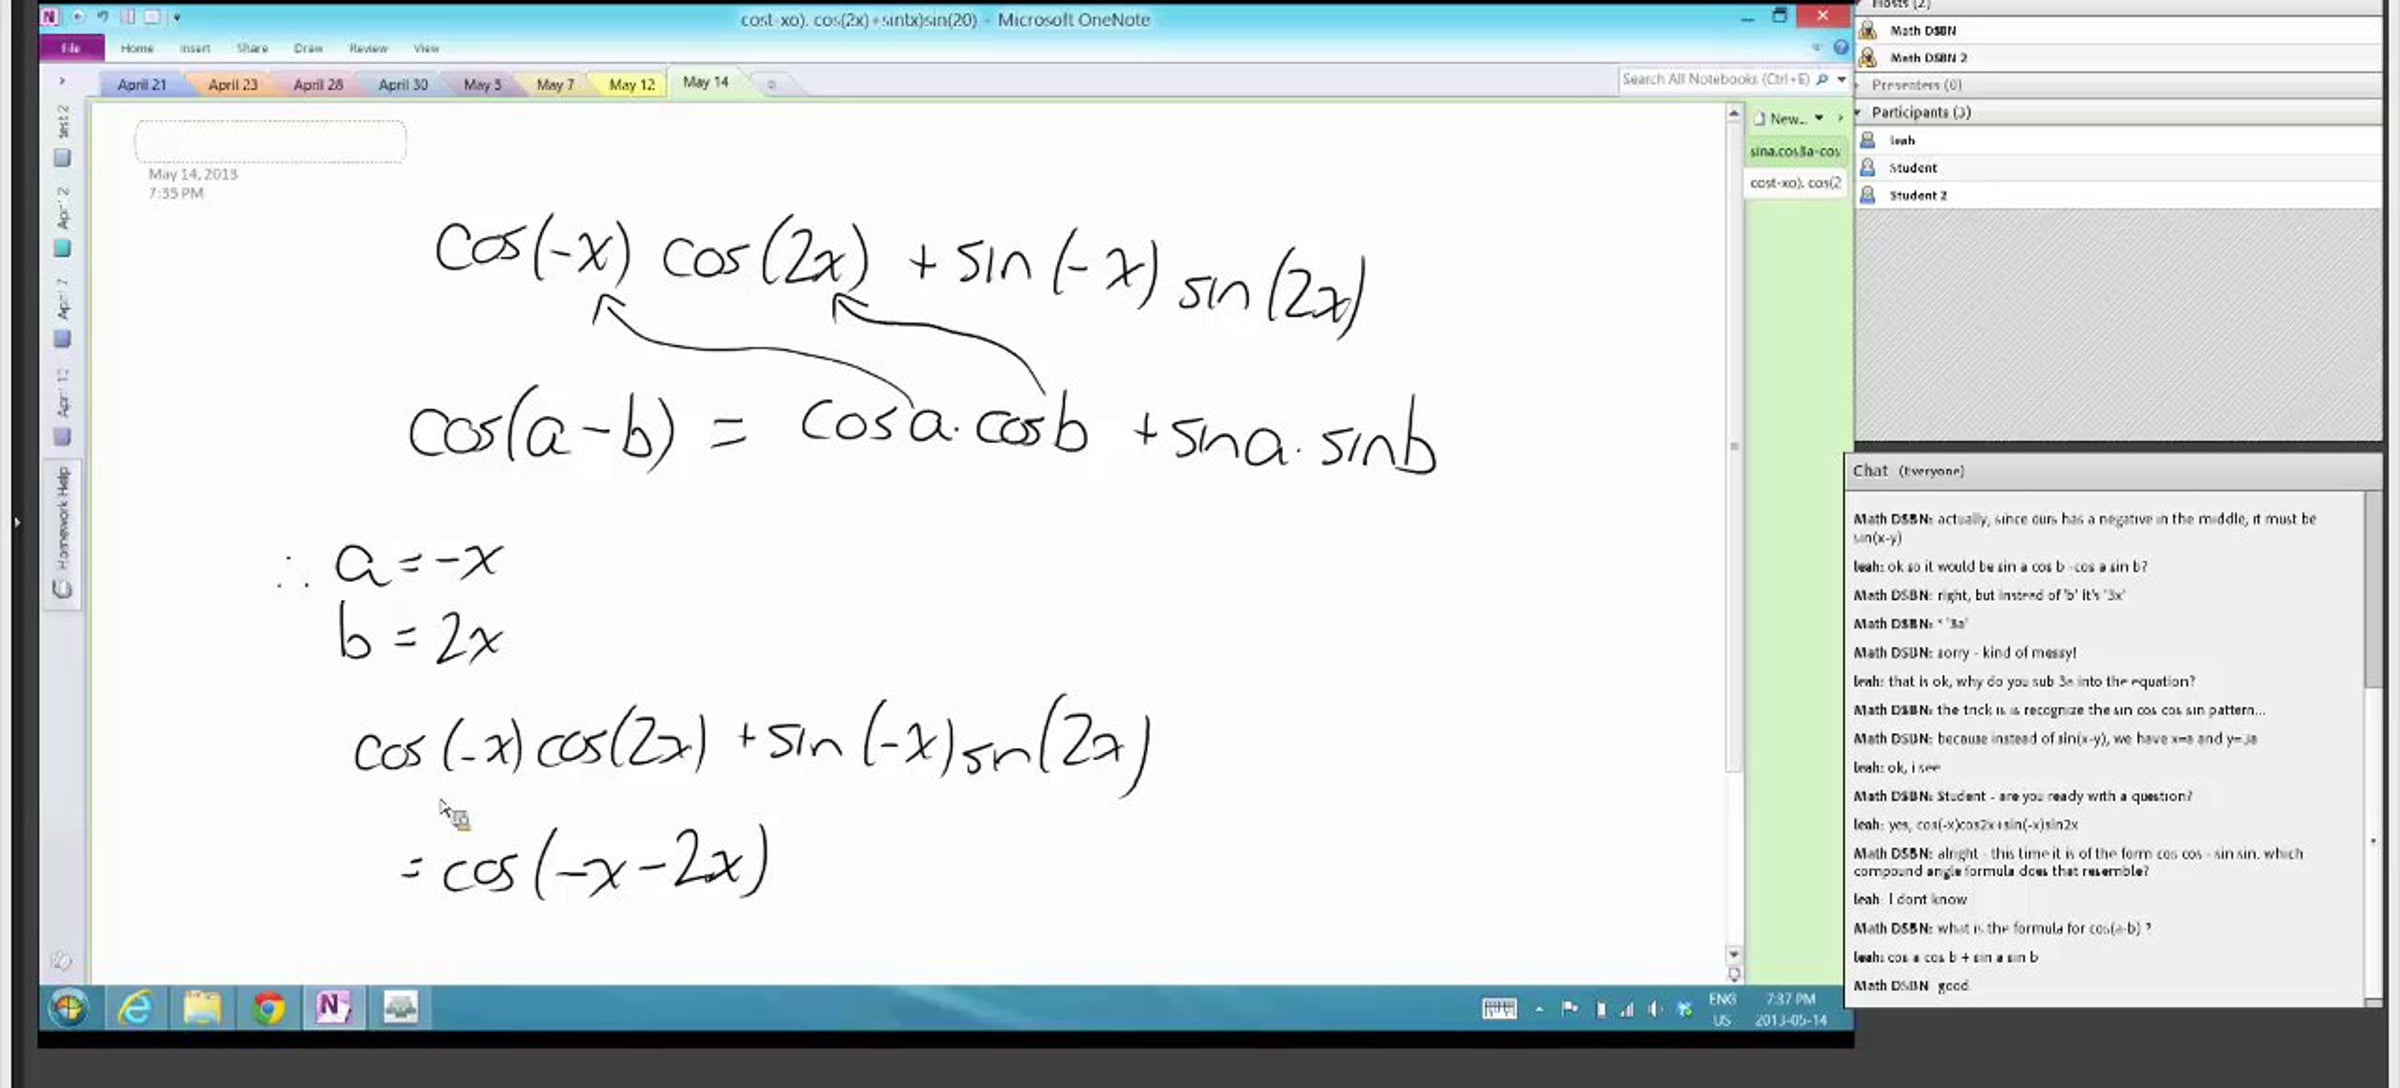 cost-xo). cos(2x)+sintx)sin(20) - Microsoft OneNote
File Home Insert Share Draw Review View
April 21 April 23 April 28 April 30 May 5 May 7 May 12 May 14
Search All Notebooks (Ctrl+E)
test 2
Apr' 2
Homework Help
May 14, 2013
7:35 PM
cos(-x) cos(2x) + sin(-x) sin(2x)
cos(a-b) = cos a. cos b + sin a. sin b
∴ a = -x
b = 2x
cos(-x) cos(2x) + sin(-x) sin(2x)
= cos(-x-2x)
New...
sina.cos3a-cos
cost-xo). cos(2
Hosts (2)
Math DSBN
Math DSBN 2
Presenters (0)
Participants (3)
leah
Student
Student 2
Chat (Everyone)
Math DSBN: actually, since ours has a negative in the middle, it must be
sin(x-y)
leah: ok so it would be sin a cos b -cos a sin b?
Math DSBN: right, but instead of 'b' it's '3x'
Math DSBN: * '3a'
Math DSBN: sorry - kind of messy!
leah: that is ok, why do you sub 3a into the equation?
Math DSBN: the trick is is recognize the sin cos cos sin pattern...
Math DSBN: because instead of sin(x-y), we have x=a and y=3a
leah: ok, i see
Math DSBN: Student - are you ready with a question?
leah: yes, cos(-x)cos2x+sin(-x)sin2x
Math DSBN: alright - this time it is of the form cos cos - sin sin. which
compound angle formula does that resemble?
leah: I dont know
Math DSBN: what is the formula for cos(a-b) ?
leah: cos a cos b + sin a sin b
Math DSBN: good.
ENG
US
7:37 PM
2013-05-14